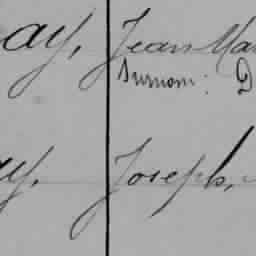 ay, Jean Mar
Surnom: D
y. Joseph,